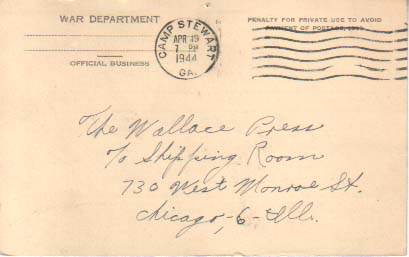 WAR DEPARTMENT
OFFICIAL BUSINESS
CAMP STEWART
APR 19
7 PM
1944
GA.
PENALTY FOR PRIVATE USE TO AVOID
PAYMENT OF POSTAGE, $300
The Wallace Press
℅ Shipping Room
730 West Monroe St.
Chicago, -6- Ill.